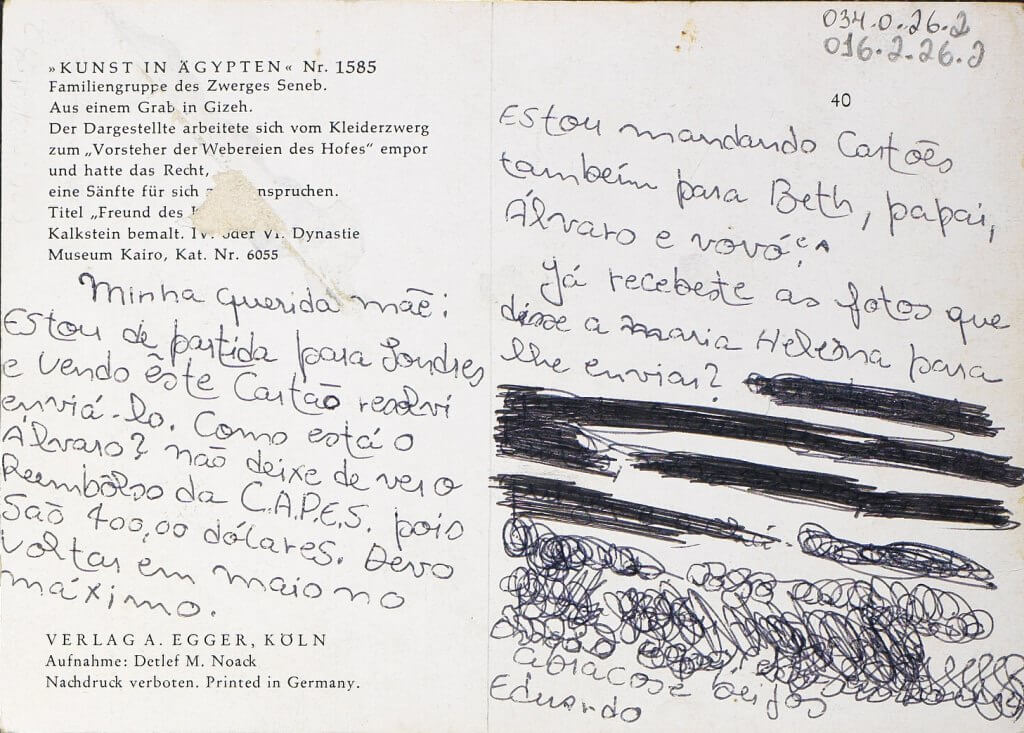 »KUNST IN ÄGYPTEN« Nr. 1585
Familiengruppe des Zwerges Seneb.
Aus einem Grab in Gizeh.
Der Dargestellte arbeitete sich vom Kleiderzwerg
zum „Vorsteher der Webereien des Hofes" empor
und hatte das Recht,
eine Sänfte für sich
Titel „Freund des
Kalkstein bemalt. IV. oder VI. Dynastie
Museum Kairo, Kat. Nr. 6055
Minha querida mãe:
Estou de partida para Londres
e vendo êste Cartão resolvi
enviá-lo. Como está o
Álvaro? não deixe de ver o
Reembôlso da C.A.P.E.S. pois
São 400,00 dólares. Devo
voltar em maio no
máximo.
VERLAG A. EGGER, KÖLN
Aufnahme: Detlef M. Noack
Nachdruck verboten. Printed in Germany.
034.0.26.2
016.2.26.2
40
Estou mandando Cartões
também para Beth, papai,
Álvaro e vovó
Já recebeste as fotos que
disse a Maria Helena para
lhe enviar?
abraços e beijos
Eduardo